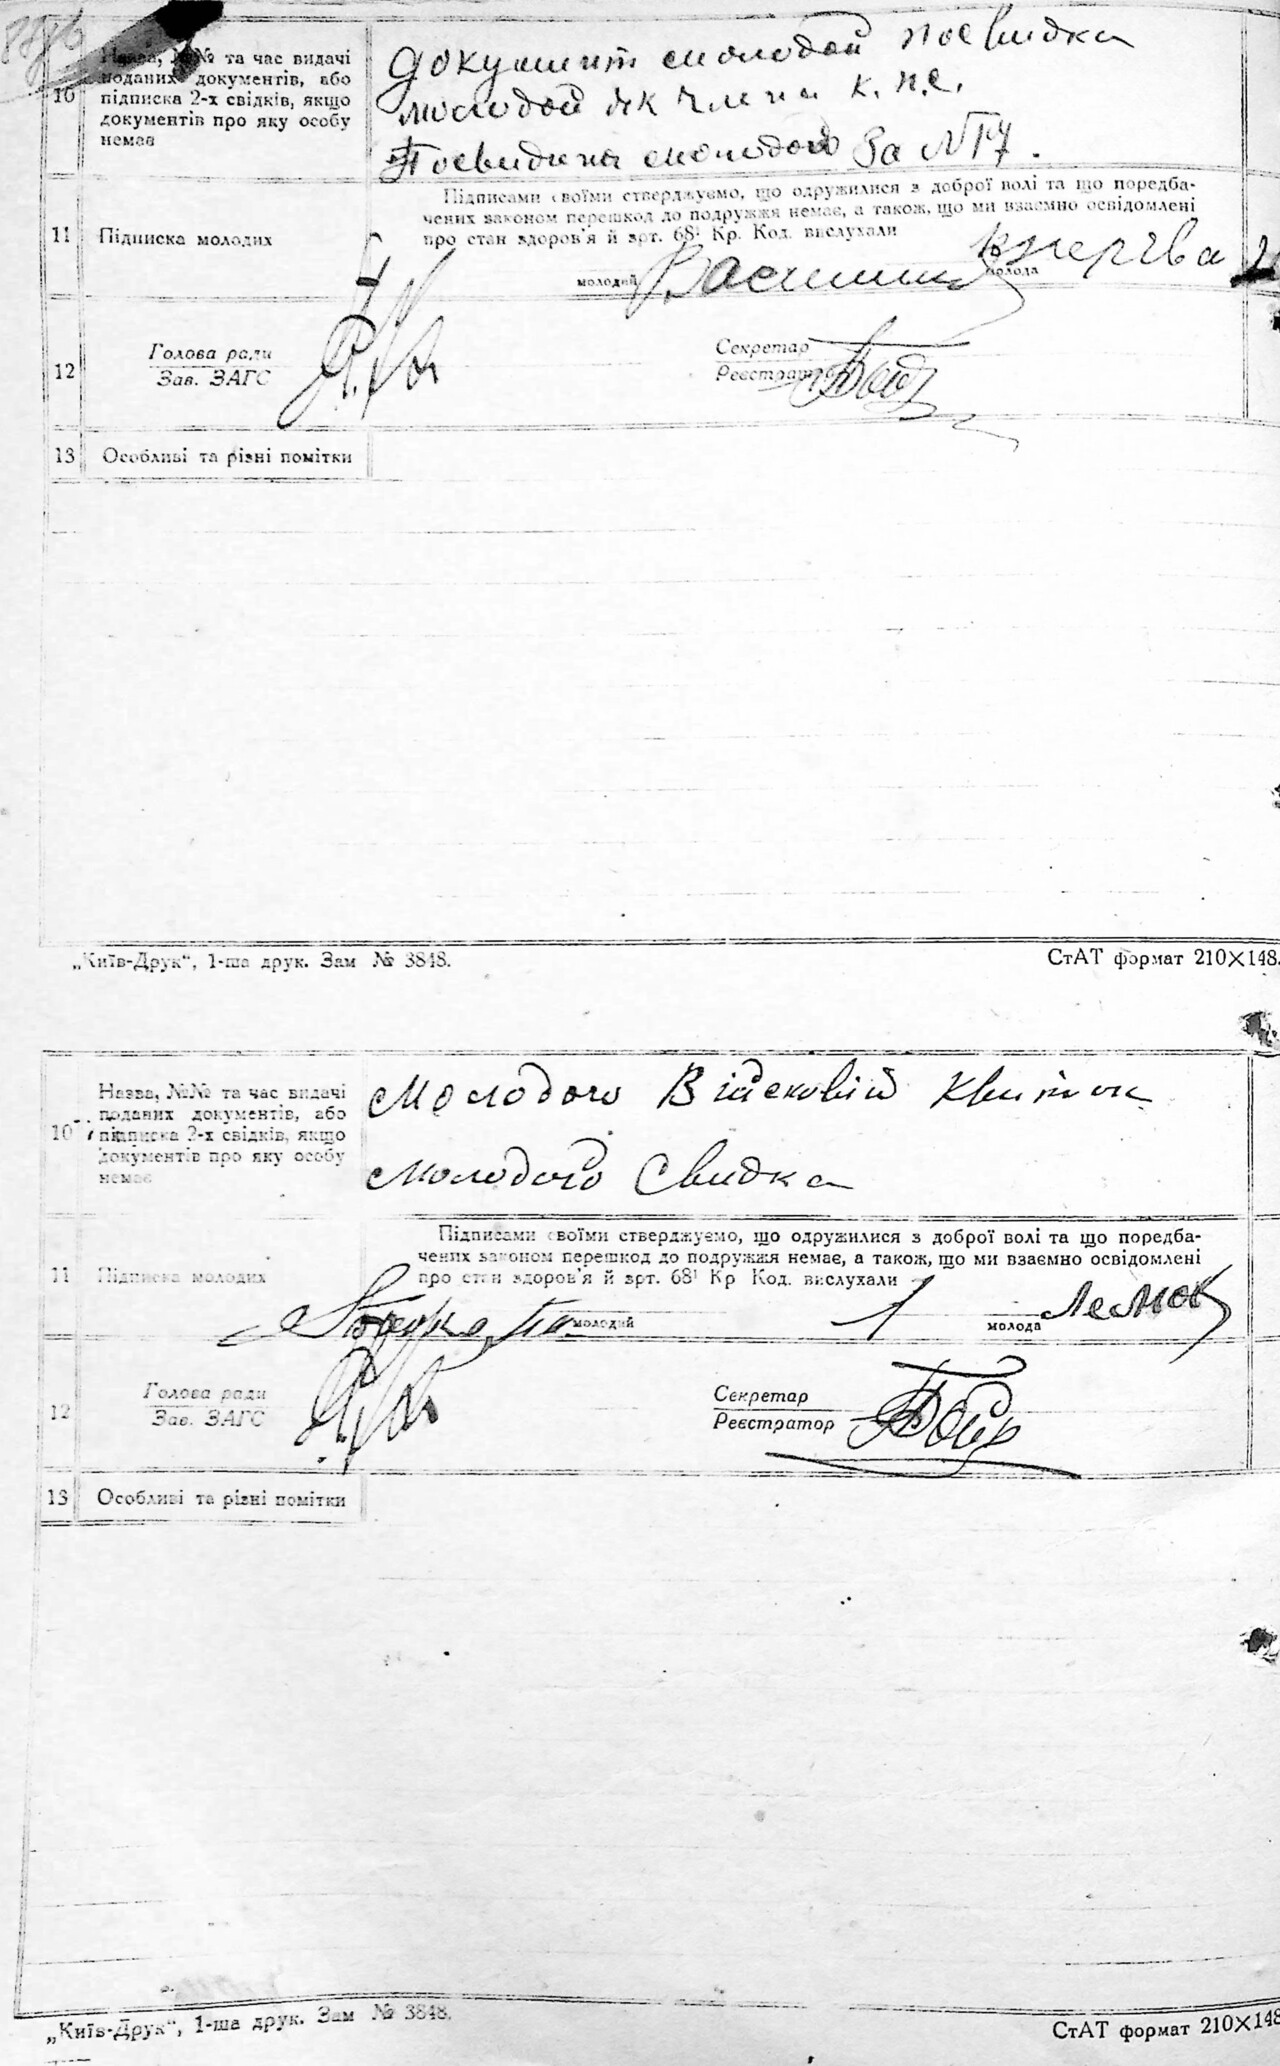 Назва, №№ та час видачі
поданих документів, або
10 підписка 2-х свідків, якщо
документів про яку особу
немає
документ молодой посвидка
молодой як члена к.н.с.
Посвидина молодого За №17.
Підписами своїми стверджуємо, що одружилися з доброї волі та що поредба-
чених законом перешкод до подружжя немає, а також, що ми взаємно освідомлені
11 Підписка молодих про стан здоров'я й арт. 68¹ Кр. Код. вислухали
молодий молода
Голова ради Секретар
12 Зав. ЗАГС Реєстратор
13 Особливі та різні помітки
„Київ-Друк“, 1-ша друк. Зам № 3848. СтАТ формат 210×148.
Назва, №№ та час видачі
поданих документів, або
10 підписка 2-х свідків, якщо
документів про яку особу
немає
Молодого Війсковій Квиток
Молодого Свидка
Підписами своїми стверджуємо, що одружилися з доброї волі та що поредба-
чених законом перешкод до подружжя немає, а також, що ми взаємно освідомлені
11 Підписка молодих про стан здоров'я й арт. 68¹ Кр Код. вислухали
молодий молода
Голова ради Секретар
12 Зав. ЗАГС Реєстратор
13 Особливі та різні помітки
„Київ-Друк“, 1-ша друк. Зам № 3848. СтАТ формат 210×148